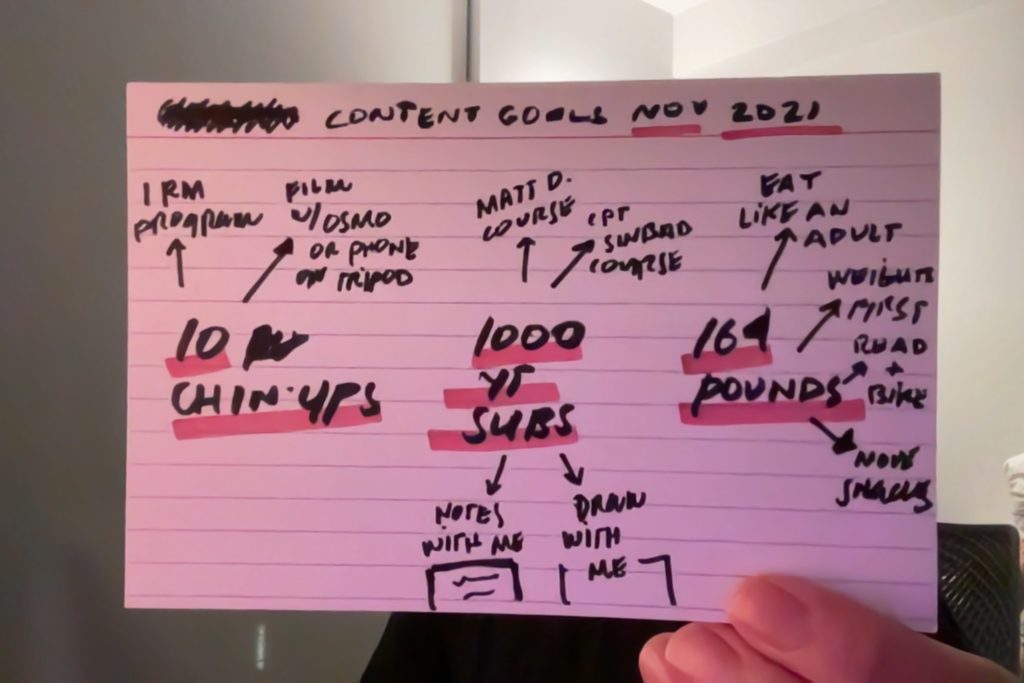 CONTENT GOALS NOV 2021
1 RM
PROGRAM
FILM
W/OSMO
OR PHONE
ON TRIPOD
MATT D.
COURSE
CPT
SINBAD
COURSE
EAT
LIKE AN
ADULT
WEIGHTS
FIRST
ROAD
+
BIKE
10
CHIN-UPS
1000
YT
SUBS
164
POUNDS
NOTES
WITH ME
DRAW
WITH
ME
SNACKS